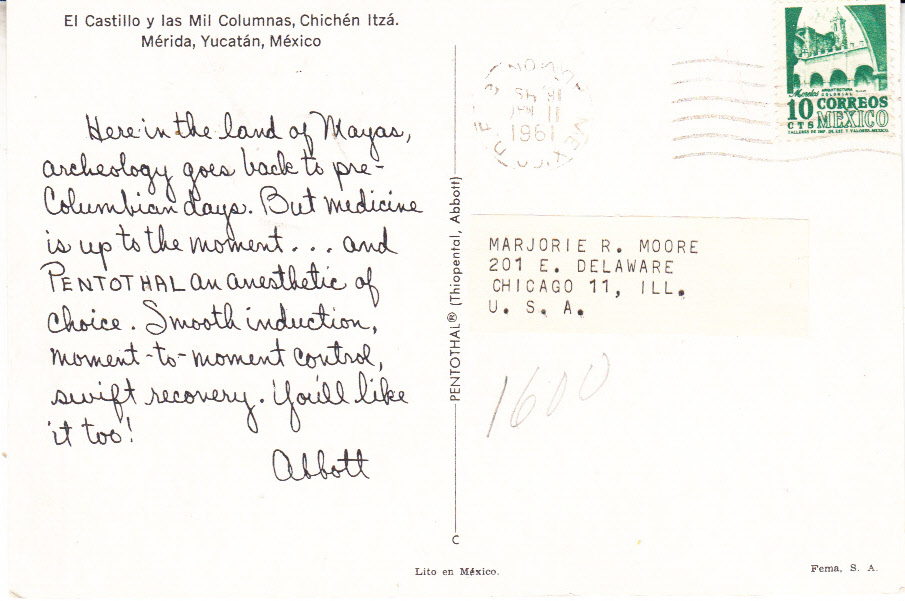 El Castillo y las Mil Columnas, Chichén Itzá.
Mérida, Yucatán, México
Here in the land of Mayas,
archeology goes back to pre-
Columbian days. But medicine
is up to the moment... and
PENTOTHAL an anesthetic of
choice. Smooth induction,
moment-to-moment control,
swift recovery. You'll like
it too!
Abbott
PENTOTHAL® (Thiopental, Abbott)
C
1961
Morelos ARQUITECTURA
COLONIAL
10 CORREOS
CTS MEXICO
TALLERES DE IMP. DE EST. Y VALORES-MEXICO
MARJORIE R. MOORE
201 E. DELAWARE
CHICAGO 11, ILL.
U. S. A.
1600
Lito en México.
Fema, S. A.